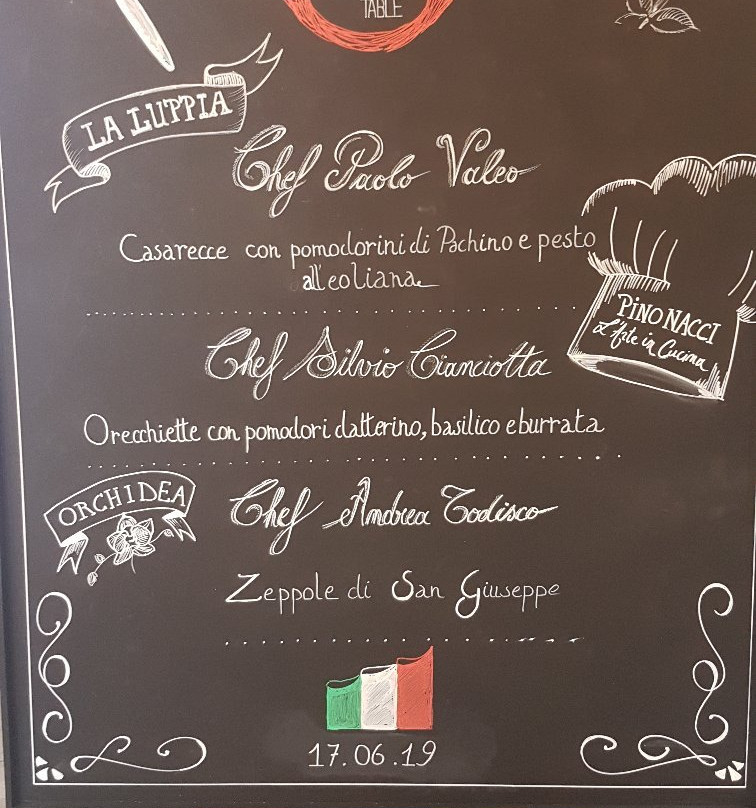 TABLE
LA LUPPIA
Chef Paolo Valeo
Casarecce con pomodorini di Pachino e pesto
all'eoliana
PINO NACCI
L'Arte in Cucina
Chef Silvio Cianciotta
Orecchiette con pomodori datterino, basilico e burrata
ORCHIDEA
Chef Andrea Todisco
Zeppole di San Giuseppe
17.06.19